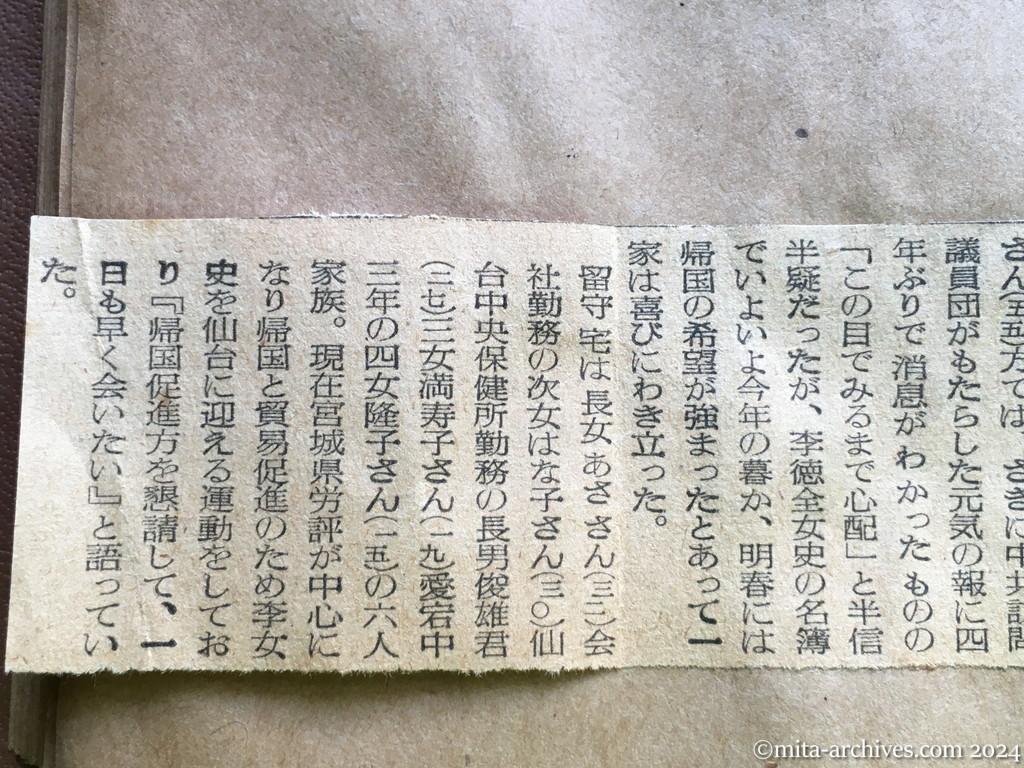 さん(五五)方では、さきに中共訪問
議員団がもたらした元気の報に四
年ぶりで消息がわかったものの
「この目でみるまで心配」と半信
半疑だったが、李徳全女史の名簿
でいよいよ今年の暮か、明春には
帰国の希望が強まったとあって一
家は喜びにわき立った。
留守宅は長女あささん(三二)会
社勤務の次女はな子さん(三〇)仙
台中央保健所勤務の長男俊雄君
(二七)三女満寿子さん(一九)愛宕中
三年の四女隆子さん(一五)の六人
家族。現在宮城県労評が中心に
なり帰国と貿易促進のため李女
史を仙台に迎える運動をしてお
り『帰国促進方を懇請して、一
日も早く会いたい』と語ってい
た。
©mita-archives.com 2024